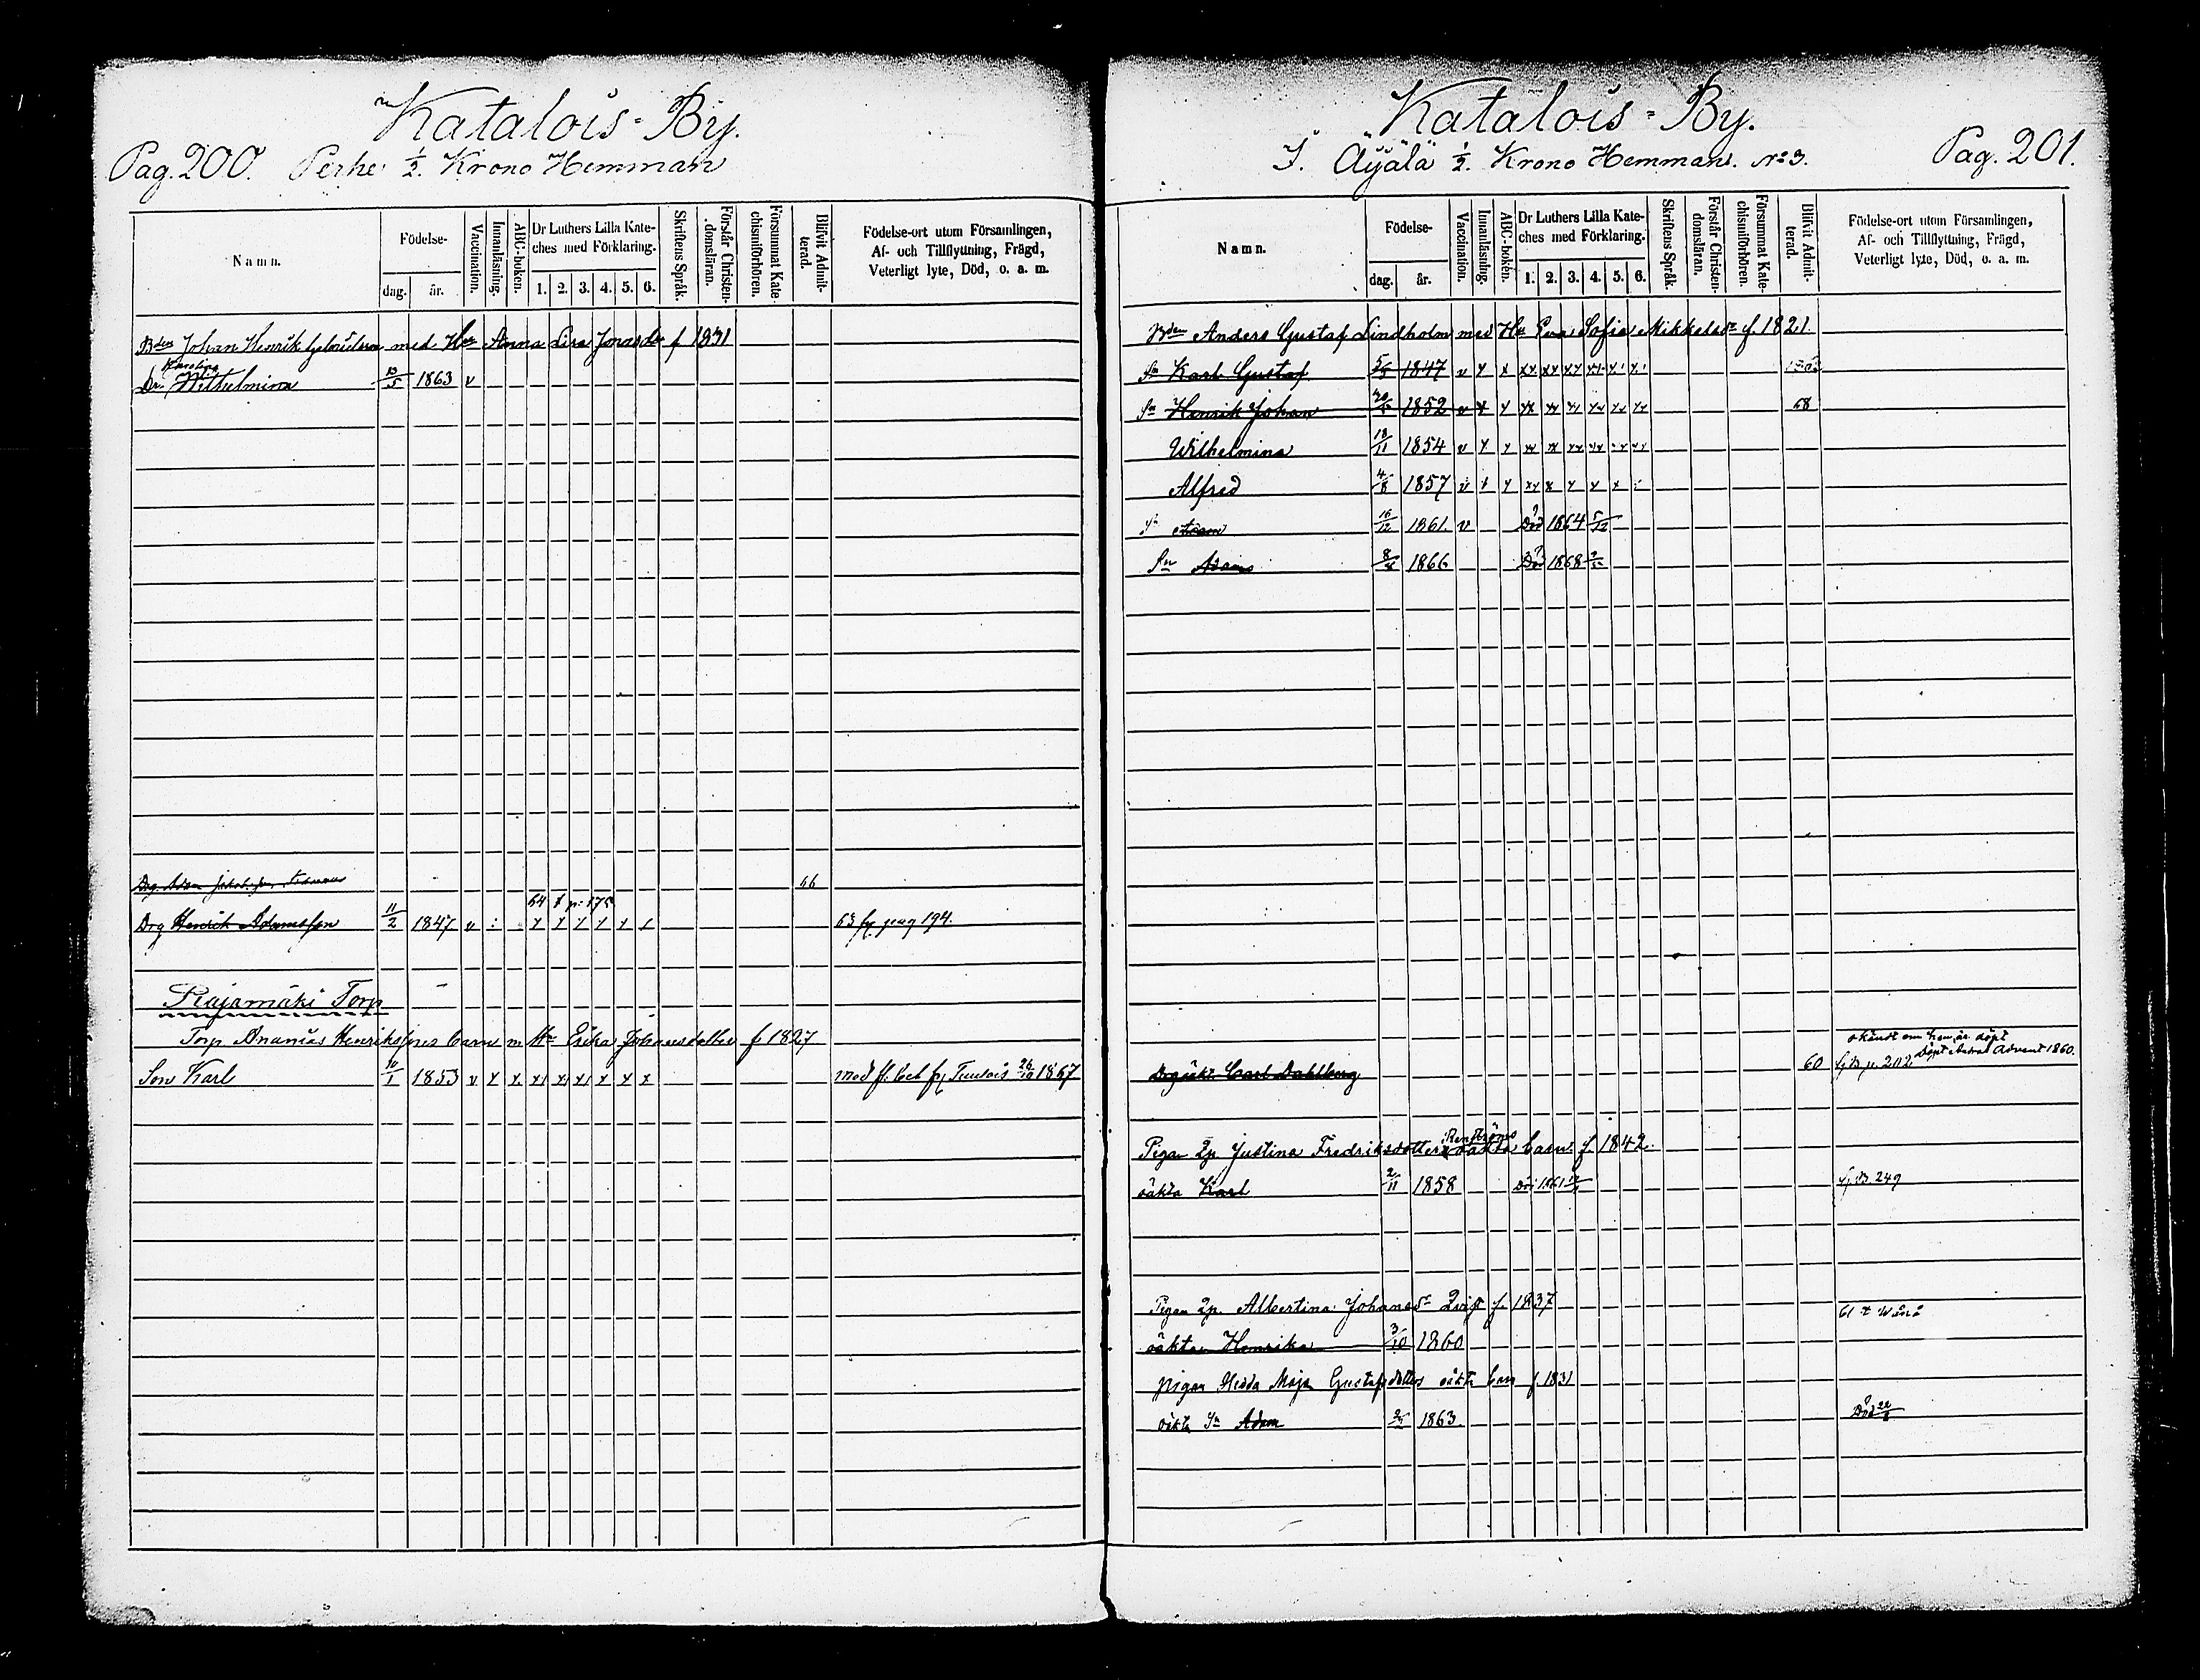 Katalois-By.
Pag. 200. Perhe ½. Krono Hemman
Namn.
Födelse-
dag.
år.
Vaccination.
Innanläsning.
ABC-boken.
Dr Luthers Lilla Kate-
ches med Förklaring.
1. 2. 3. 4. 5. 6.
Skriftens Språk.
Förstår Christen-
domsläran.
Försummat Kate-
chismiförhören.
Blifvit Admit-
terad.
Födelse-ort utom Församlingen,
Af- och Tillflyttning, Frägd,
Veterligt lyte, Död, o. a. m.
Bden Johan Henrik med Hu Anna Lisa Jonasdr f 1831
Karolina
Dr. Wilhelmina 13/5 1863 v
Drg. Adam 66
64 t p. 175
Drg Henrik Adamsson 11/2 1847 v x x x x x x 63 fr pag 194.
Rajamäki Torp
Torp Ananias Henrikssons barn m Hu Erika Johansdotter f 1827
Son Karl 10/1 1853 v x x x x x x x x med fl. bet fr Tuulois 26/10 1867
Katalois-By.
I. Äyälä ½. Krono Hemman. No 3. Pag. 201.
Namn.
Födelse-
dag.
år.
Vaccination.
Innanläsning.
ABC-boken.
Dr Luthers Lilla Kate-
ches med Förklaring.
1. 2. 3. 4. 5. 6.
Skriftens Språk.
Förstår Christen-
domsläran.
Försummat Kate-
chismiförhören.
Blifvit Admit-
terad.
Födelse-ort utom Församlingen,
Af- och Tillflyttning, Frägd,
Veterligt lyte, Död, o. a. m.
Bden Anders Gustaf Lindholm med Hu Eva Sofia Mikkelsdr f. 1821.
Sn Karl Gustaf 5/8 1847 v x x xx xx xx xx x x
Sn Henrik Johan 1852 v x x xx xx xx xx xx xx 68
Wilhelmina 18/11 1854 v x x xx xx xx xx xx xx
Alfred 4/8 1857 v x x xx x x x x
Sn Adam 16/12 1861 v Död 1864 5/12
Sn Adam 1866 Död 1868
okändt om han är döpt
Döpt Andra Advent 1860.
Drg oäkt. Carl Dahlberg 60 fr B p. 202
Renströms
Pigan Lp. Justina Fredriksdotters oäkta barn f. 1842.
oäkta Karl 2/11 1858 Död 1861 fr B. 249
Pigan Lp. Albertina Johansdr Qvist f. 1837
61 t Wånå
oäkta Henrika 3/10 1860
pigan Hedda Maja Gustafsdotters oäkta barn f 1831
oäkta Sn Adam 1863 Död 22/8